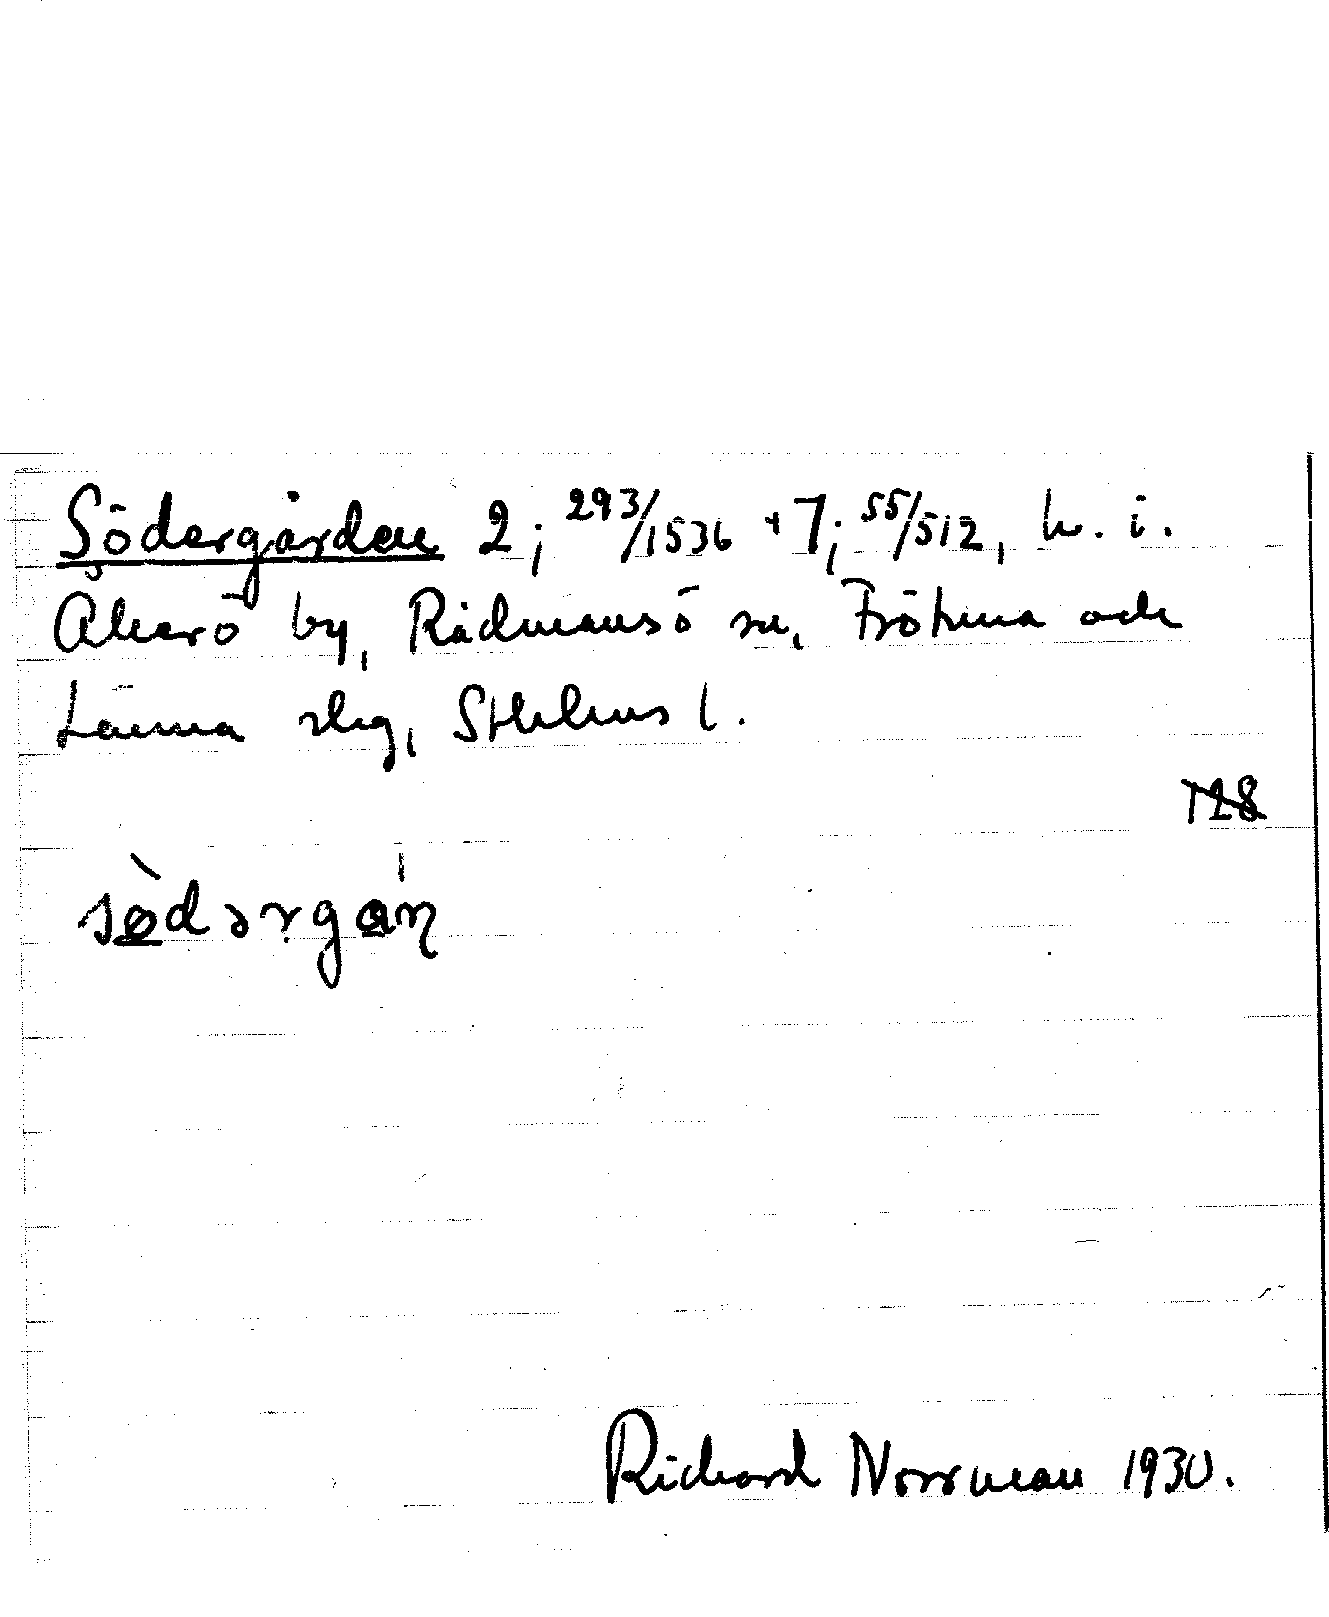 Södergården 2; 293/1536 + 7; 55/512, h. i.
Åkerö by, Rådmansö sn, Frötuna och
Länna slg, Sthlms l.
128
sødərgɑ́ɳ
Richard Norrman 1930.